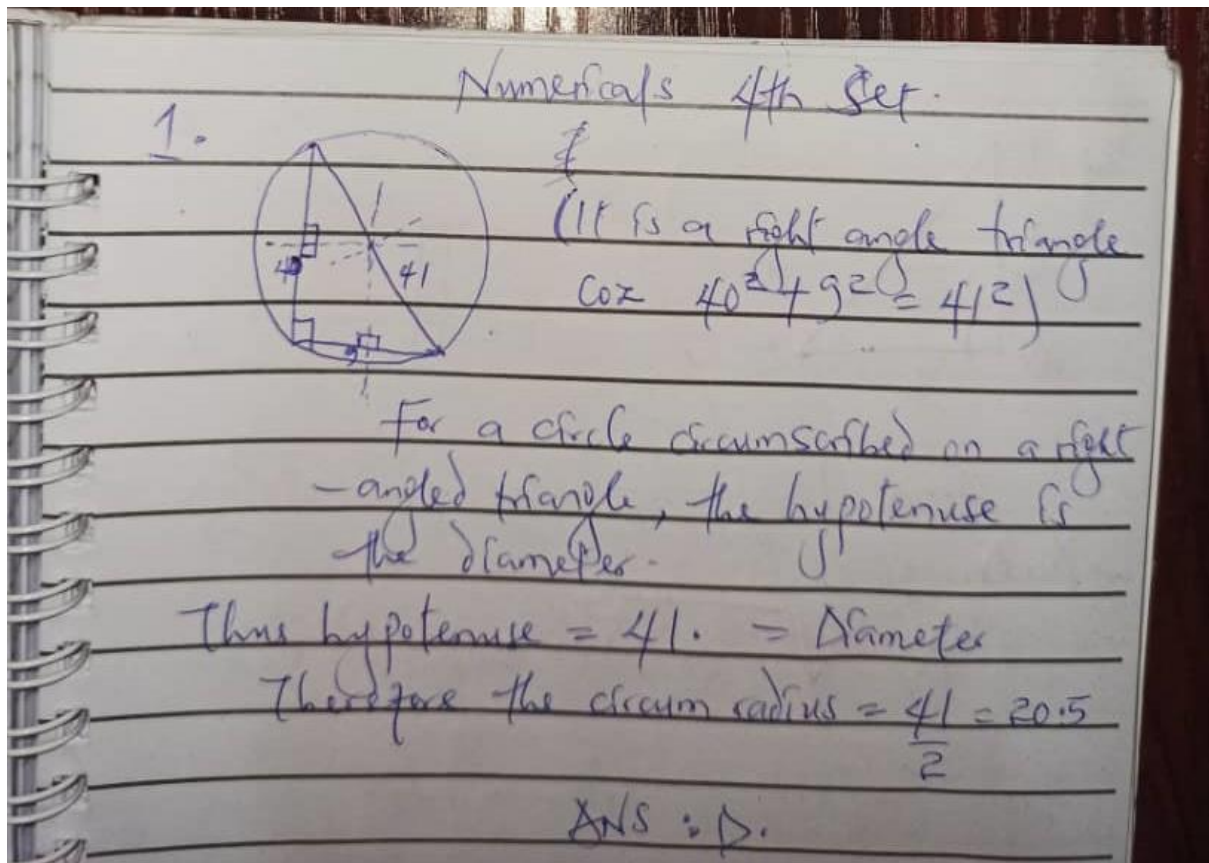 Numericals 4th Set.
1.
(It is a right angle triangle
40 41
coz 40² + 9² = 41²)
9
For a circle circumscribed on a right
-angled triangle, the hypotenuse is
the diameter.
Thus hypotenuse = 41. = Diameter
Therefore the circum radius = 41/2 = 20.5
ANS : D.